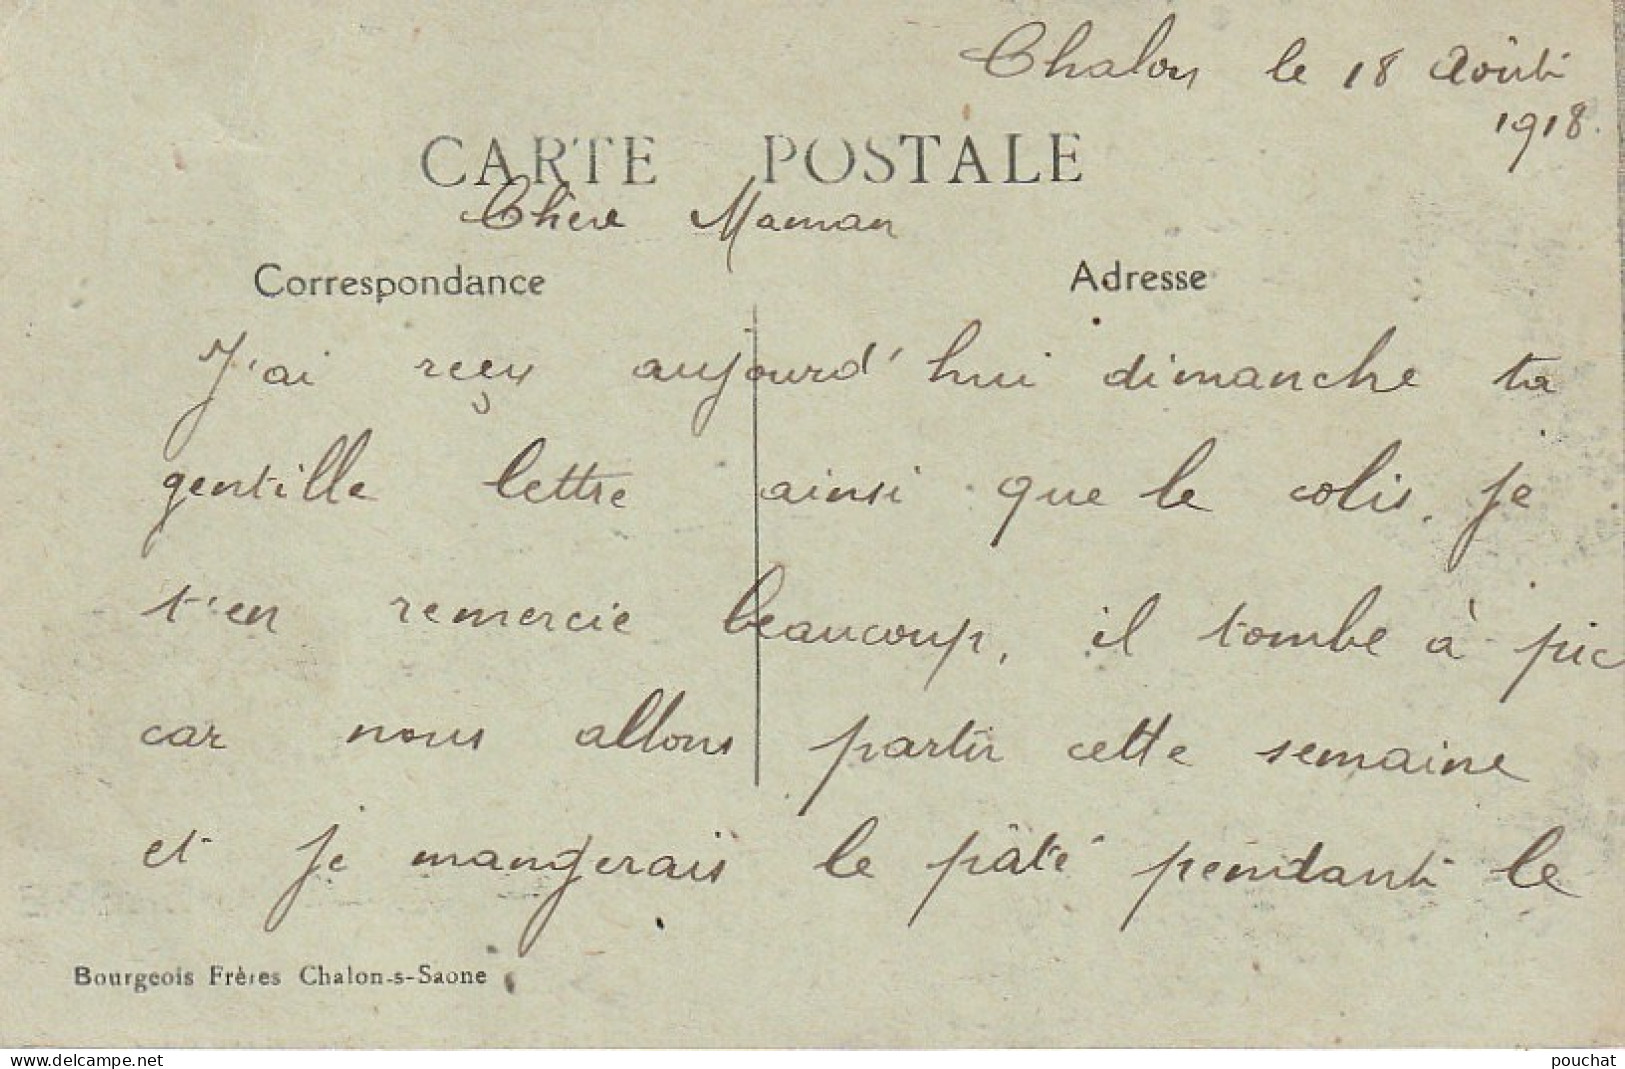 Chalon le 18 Août
1918.
CARTE POSTALE
Chère Maman
Correspondance
Adresse
J'ai reçu aujourd'hui dimanche ta
gentille lettre ainsi que le colis, je
t'en remercie beaucoup, il tombe à pic
car nous allons partir cette semaine
et je mangerais le pâté pendant le
Bourgeois Frères Chalon-s-Saone
www.delcampe.net
pouchat